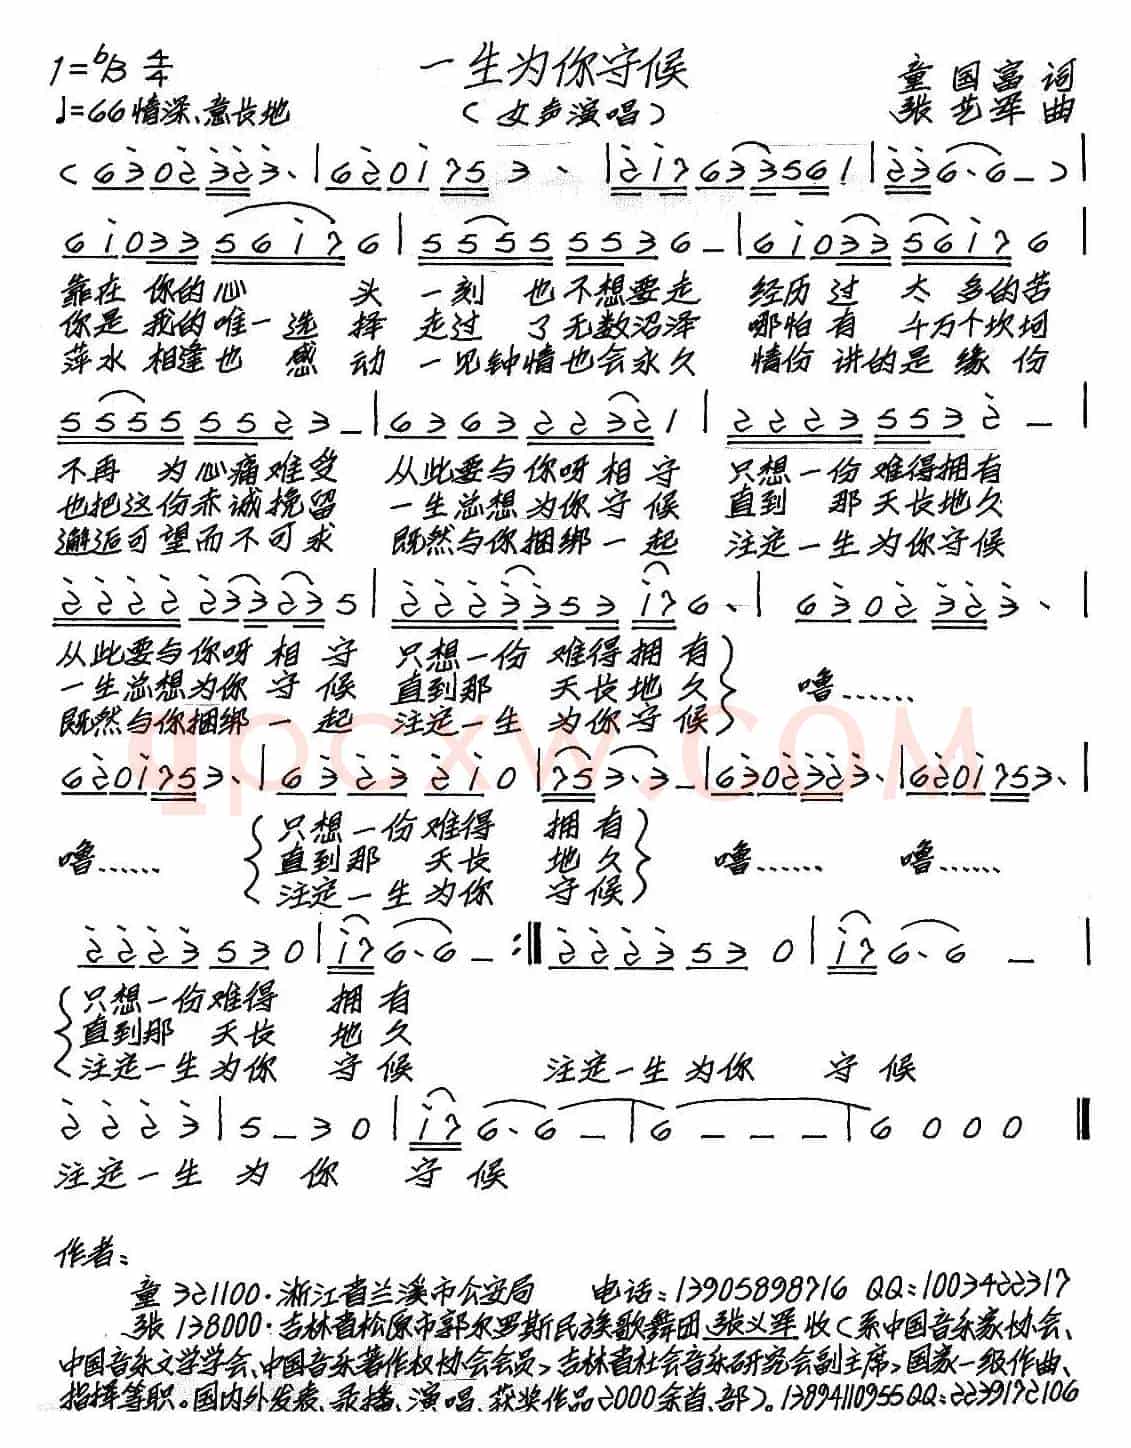 1=ᵇB 4/4
一生为你守候
童国富 词
♩=66 情深、意长地
(女声演唱)
张艺军 曲
(6 3̇ 0 2̇ 3̇ 2̇ 3̇ · | 6 2̇ 0 1̇ 7 5 3 · | 2̇ 1̇ 7 6 3 3 5 6 1 | 2̇ 3̇ 6 · 6 — ) |
6 1̇ 0 3 3 5 6 1̇ 7 6 | 5 5 5 5 5 5 3 6 — | 6 1̇ 0 3 3 5 6 1̇ 7 6 |
靠在 你的心 头 一刻 也不想要走 经历过 太多的苦
你是 我的唯一选择 走过 了无数沼泽 哪怕有 千万个坎坷
萍水 相逢也 感动 一见钟情也会永久 情份 讲的是缘份
5 5 5 5 5 5 2 3 — | 6 3 6 3 2 2 3 2 1 | 2 2 2 3 5 5 3 2̇ — |
不再 为心痛难受 从此要与你呀相守 只想一份难得拥有
也把这份赤诚挽留 一生总想为你守候 直到 那天长地久
邂逅可望而不可求 既然与你捆绑一起 注定一生为你守候
2̇ 2̇ 2̇ 2̇ 2̇ 3̇ 3̇ 2̇ 3̇ 5 | 2̇ 2̇ 2̇ 3̇ 3̇ 5 3 1̇ 7 6 · | 6 3̇ 0 2̇ 3̇ 2̇ 3̇ · |
从此要与你呀相守 只想一份难得拥有
一生总想为你守候 直到那 天长地久 噜……
既然与你捆绑一起 注定一生为你守候
qpcxw.com
6 2̇ 0 1̇ 7 5 3 · | 6 3̇ 2̇ 3̇ 2̇ 1̇ 0 | 7 5 3 · 3 — | 6 3̇ 0 2̇ 3̇ 2̇ 3̇ · | 6 2̇ 0 1̇ 7 5 3 · |
只想一份难得 拥有
噜…… 直到那 天长 地久 噜…… 噜……
注定一生为你 守候
2̇ 2̇ 2̇ 3̇ 5 3 0 | 1̇ 7 6 · 6 — :‖ 2̇ 2̇ 2̇ 3̇ 5 3 0 | 1̇ 7 6 · 6 — |
只想一份难得 拥有
直到那 天长 地久
注定一生为你 守候 注定一生为你 守候
2̇ 2̇ 2̇ 3̇ | 5 — 3 0 | 1̇ 7 6 · 6 — | 6 — — — | 6 0 0 0 ‖
注定一生 为 你 守候
作者:
童 321100·浙江省兰溪市公安局 电话:13905898716 QQ:1003422317
张 138000·吉林省松原市郭尔罗斯民族歌舞团张义军收(系中国音乐家协会、
中国音乐文学学会、中国音乐著作权协会会员,吉林省社会音乐研究会副主席,国家一级作曲、
指挥等职。国内外发表、录播、演唱、获奖作品2000余首、部)。13894110955 QQ:2239172106